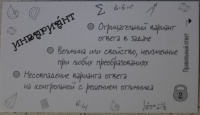 ИНВАРИАНТ
Отрицательный вариант
ответа в задаче
Величина или свойство, неизменные
при любых преобразованиях
Несовпадение варианта ответа
на контрольной с решением отличника
Правильный ответ